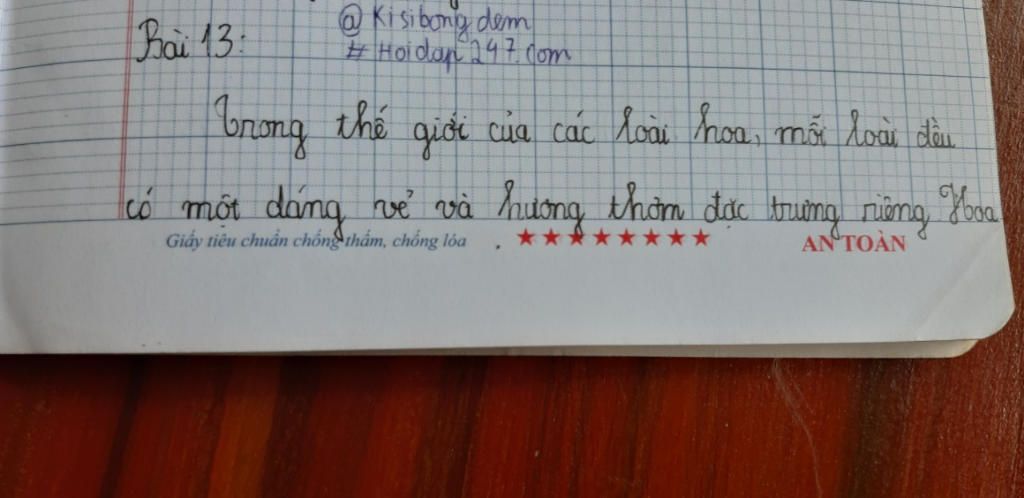 @Kisibongdem
Bài 13:
#Hoidap247.com
Trong thế giới của các loài hoa, mỗi loài đều
có một dáng vẻ và hương thơm đặc trưng riêng Hoa
Giấy tiêu chuẩn chống thấm, chống lóa
★★★★★★★★
AN TOÀN